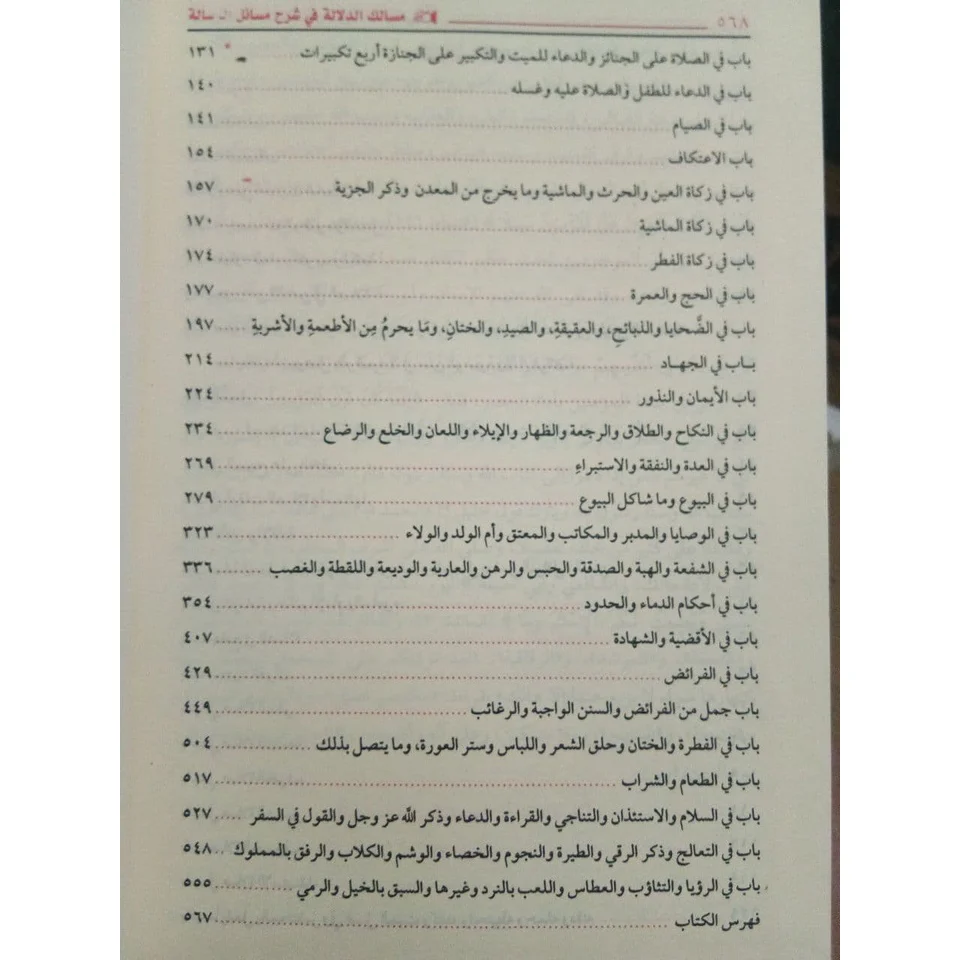 ٥٦٨ مسالك الدلالة في شرح مسائل الرسالة
باب في الصلاة على الجنائز والدعاء للميت والتكبير على الجنازة أربع تكبيرات ١٣١
باب في الدعاء للطفل والصلاة عليه وغسله ١٤٠
باب في الصيام ١٤١
باب الاعتكاف ١٥٤
باب في زكاة العين والحرث والماشية وما يخرج من المعدن وذكر الجزية ١٥٧
باب في زكاة الماشية ١٧٠
باب في زكاة الفطر ١٧٤
باب في الحج والعمرة ١٧٧
باب في الضَّحايا والذبائحِ، والعقيقةِ، والصيدِ، والختانِ، ومَا يحرمُ مِن الأطعمةِ والأشربةِ ١٩٧
بـاب في الجهـاد ٢١٤
باب الأيمان والنذور ٢٢٤
باب في النكاح والطلاق والرجعة والظهار والإيلاء واللعان والخلع والرضاع ٢٣٤
باب في العدة والنفقة والاستبراءِ ٢٦٩
باب في البيوع وما شاكل البيوع ٢٧٩
باب في الوصايا والمدبر والمكاتب والمعتق وأم الولد والولاء ٣٢٣
باب في الشفعة والهبة والصدقة والحبس والرهن والعارية والوديعة واللقطة والغصب ٣٣٦
باب في أحكام الدماء والحدود ٣٥٤
باب في الأقضية والشهادة ٤٠٧
باب في الفرائض ٤٢٩
باب جمل من الفرائض والسنن الواجبة والرغائب ٤٤٩
باب في الفطرة والختان وحلق الشعر واللباس وستر العورة، وما يتصل بذلك ٥٠٤
باب في الطعام والشراب ٥١٧
باب في السلام والاستئذان والتناجي والقراءة والدعاء وذكر الله عز وجل والقول في السفر ٥٢٧
باب في التعالج وذكر الرقي والطيرة والنجوم والخصاء والوشم والكلاب والرفق بالمملوك ٥٤٨
باب في الرؤيا والتثاؤب والعطاس واللعب بالنرد وغيرها والسبق بالخيل والرمي ٥٥٥
فهرس الكتاب ٥٦٧